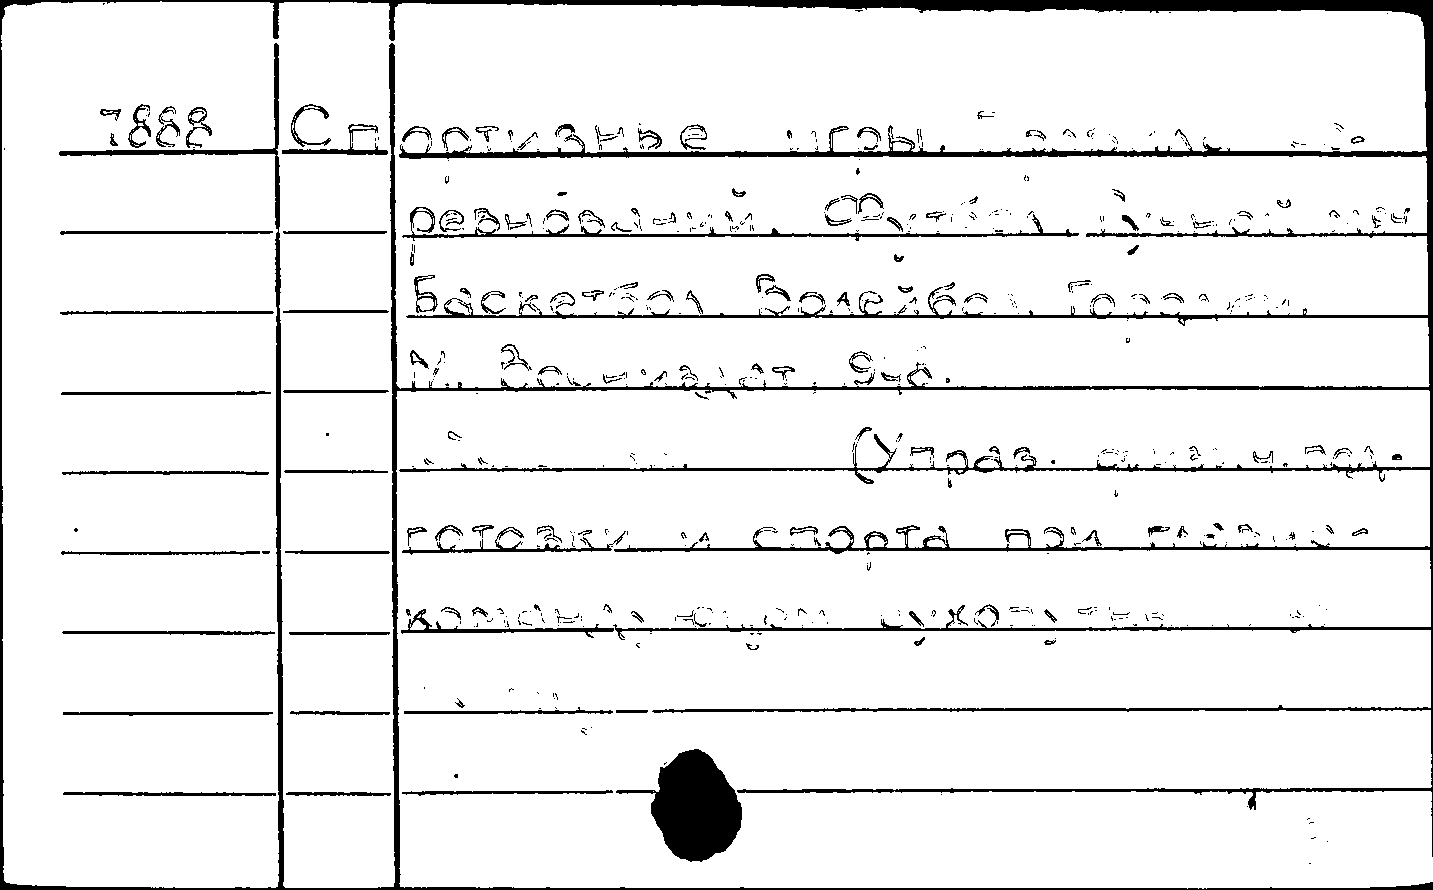 7888 Спортивные игры. Правила со-
ревнований. Футбол. Ручной мяч
Баскетбол. Волейбол. Городки.
М. Воениздат, 946.
(Управ. физич. под-
готовки и спорта при главно-
командующем сухопутн.